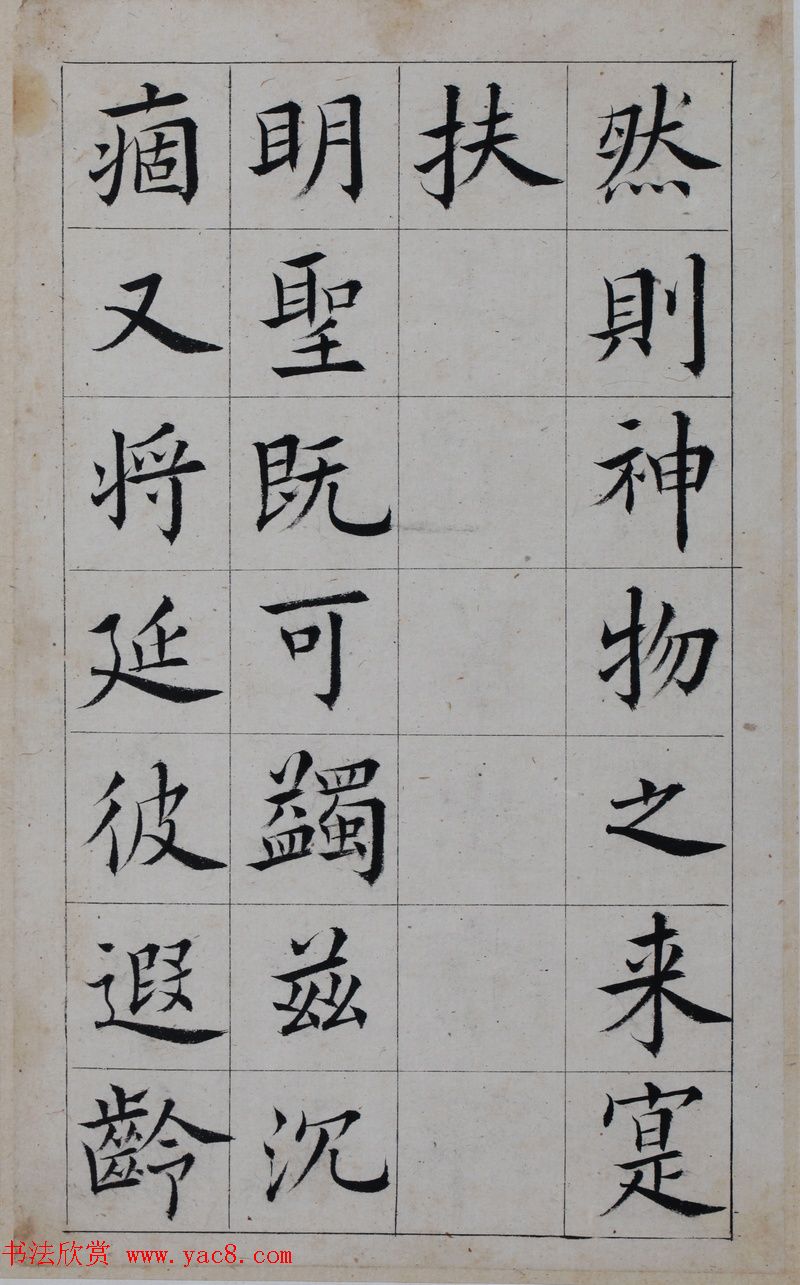 然則神物之来寔
扶
明聖既可蠲兹沉
痼又将延彼遐齡
书法欣赏 www.yac8.com